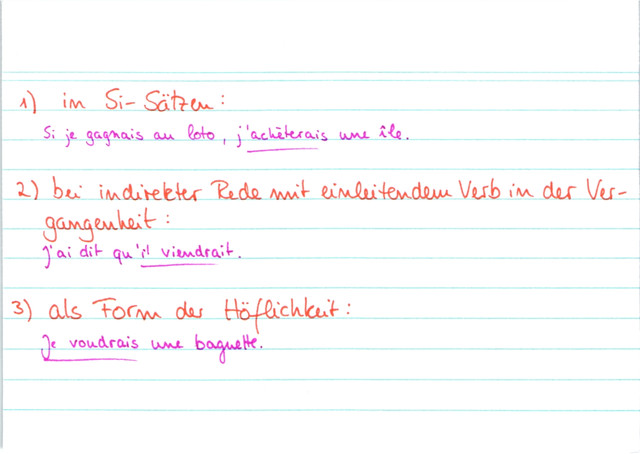 1) in Si-Sätzen:
Si je gagnais au loto, j'achèterais une île.
2) bei indirekter Rede mit einleitendem Verb in der Ver-
gangenheit:
J'ai dit qu'il viendrait.
3) als Form der Höflichkeit:
Je voudrais une baguette.